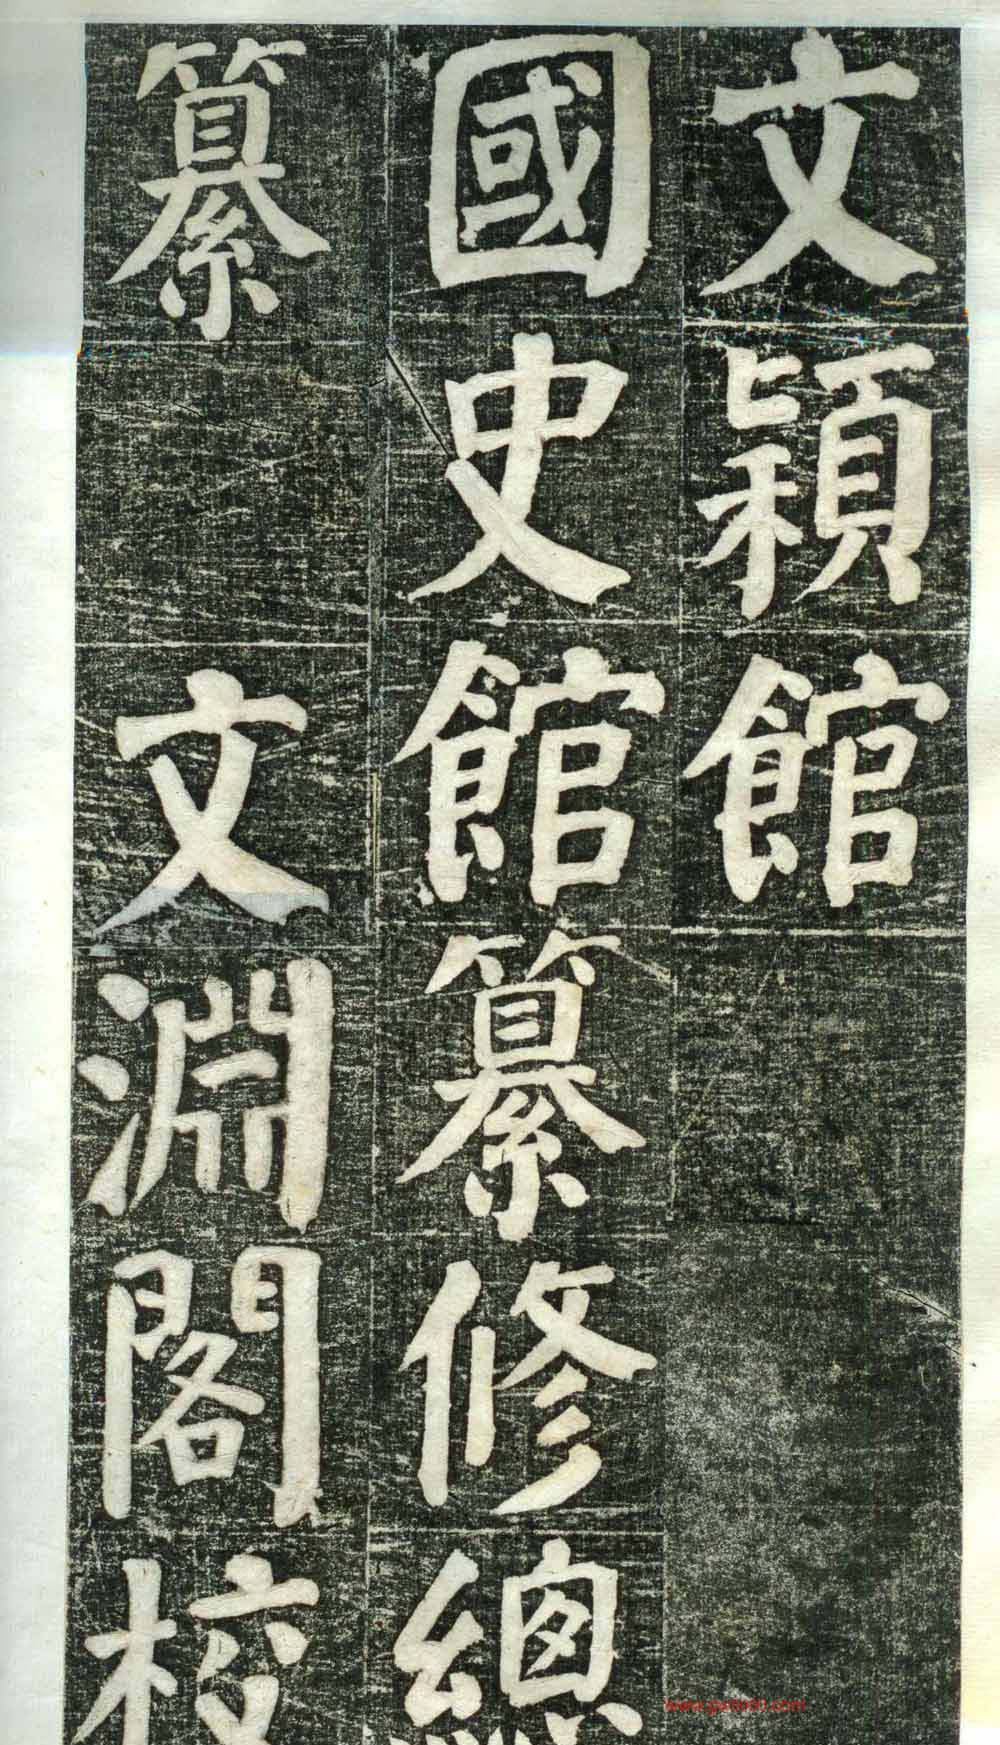 文穎館
國史館纂修總
纂 文淵閣校